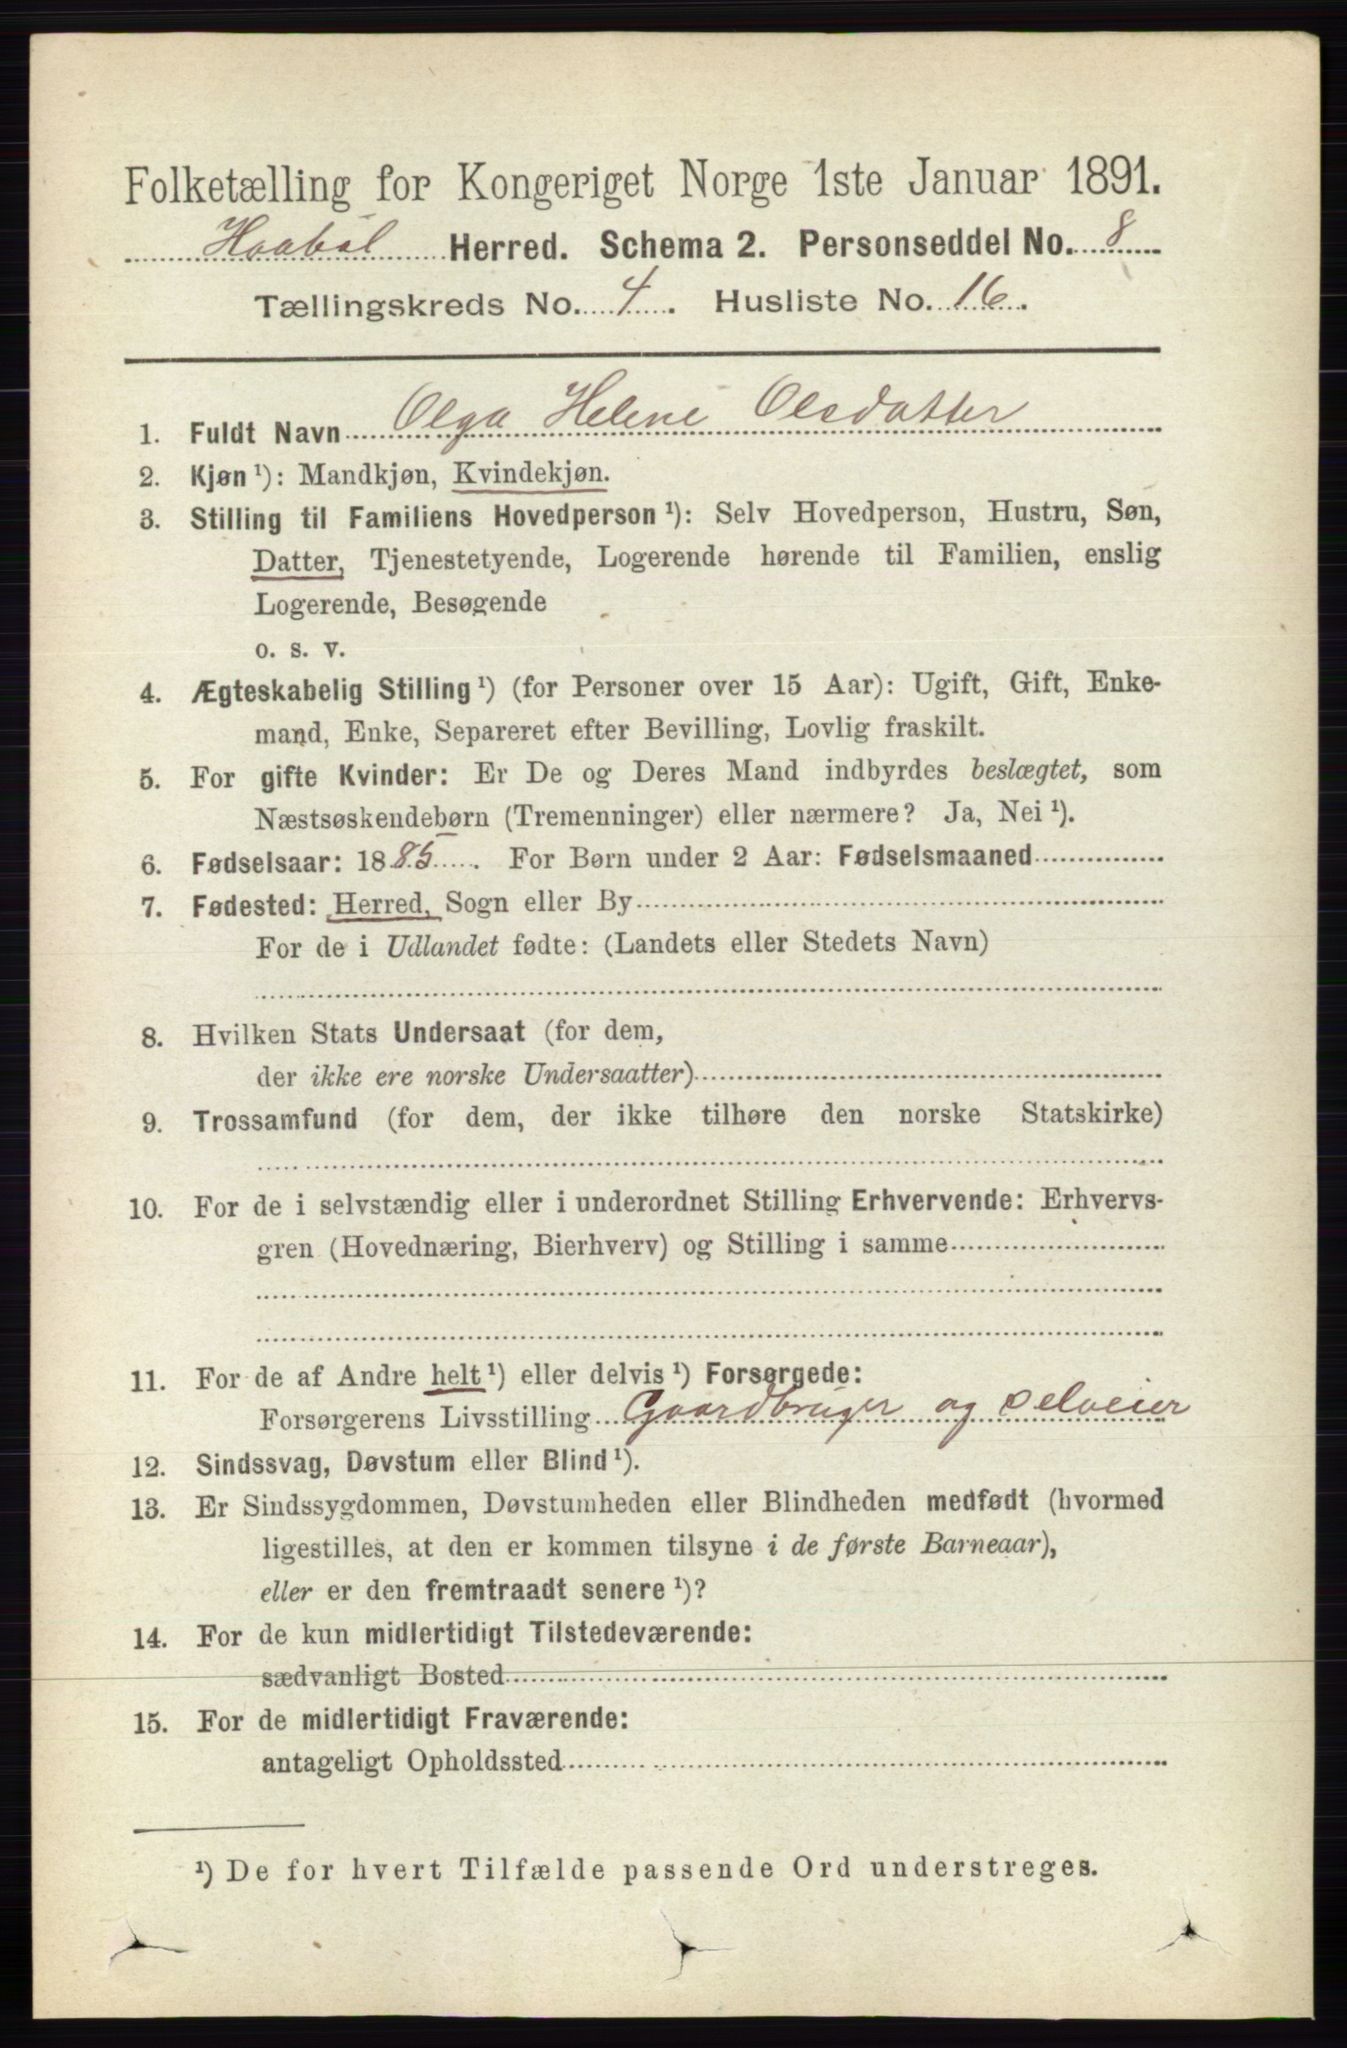 Folketælling for Kongeriget Norge 1ste Januar 1891.
Haabøl Herred. Schema 2. Personseddel No. 8
Tællingskreds No. 4. Husliste No. 16.
1. Fuldt Navn Olga Helene Olsdatter
2. Kjøn ¹): Mandkjøn, Kvindekjøn.
3. Stilling til Familiens Hovedperson ¹): Selv Hovedperson, Hustru, Søn,
Datter, Tjenestetyende, Logerende hørende til Familien, enslig
Logerende, Besøgende
o. s. v.
4. Ægteskabelig Stilling ¹) (for Personer over 15 Aar): Ugift, Gift, Enke-
mand, Enke, Separeret efter Bevilling, Lovlig fraskilt.
5. For gifte Kvinder: Er De og Deres Mand indbyrdes beslægtet, som
Næstsøskendebørn (Tremenninger) eller nærmere? Ja, Nei ¹).
6. Fødselsaar: 1885. For Børn under 2 Aar: Fødselsmaaned
7. Fødested: Herred, Sogn eller By
For de i Udlandet fødte: (Landets eller Stedets Navn)
8. Hvilken Stats Undersaat (for dem,
der ikke ere norske Undersaatter)
9. Trossamfund (for dem, der ikke tilhøre den norske Statskirke)
10. For de i selvstændig eller i underordnet Stilling Erhvervende: Erhvervs-
gren (Hovednæring, Bierhverv) og Stilling i samme
11. For de af Andre helt ¹) eller delvis ¹) Forsørgede:
Forsørgerens Livsstilling Gaardbruger og Selveier
12. Sindssvag, Døvstum eller Blind ¹).
13. Er Sindssygdommen, Døvstumheden eller Blindheden medfødt (hvormed
ligestilles, at den er kommen tilsyne i de første Barneaar),
eller er den fremtraadt senere ¹)?
14. For de kun midlertidigt Tilstedeværende:
sædvanligt Bosted
15. For de midlertidigt Fraværende:
antageligt Opholdssted
¹) De for hvert Tilfælde passende Ord understreges.